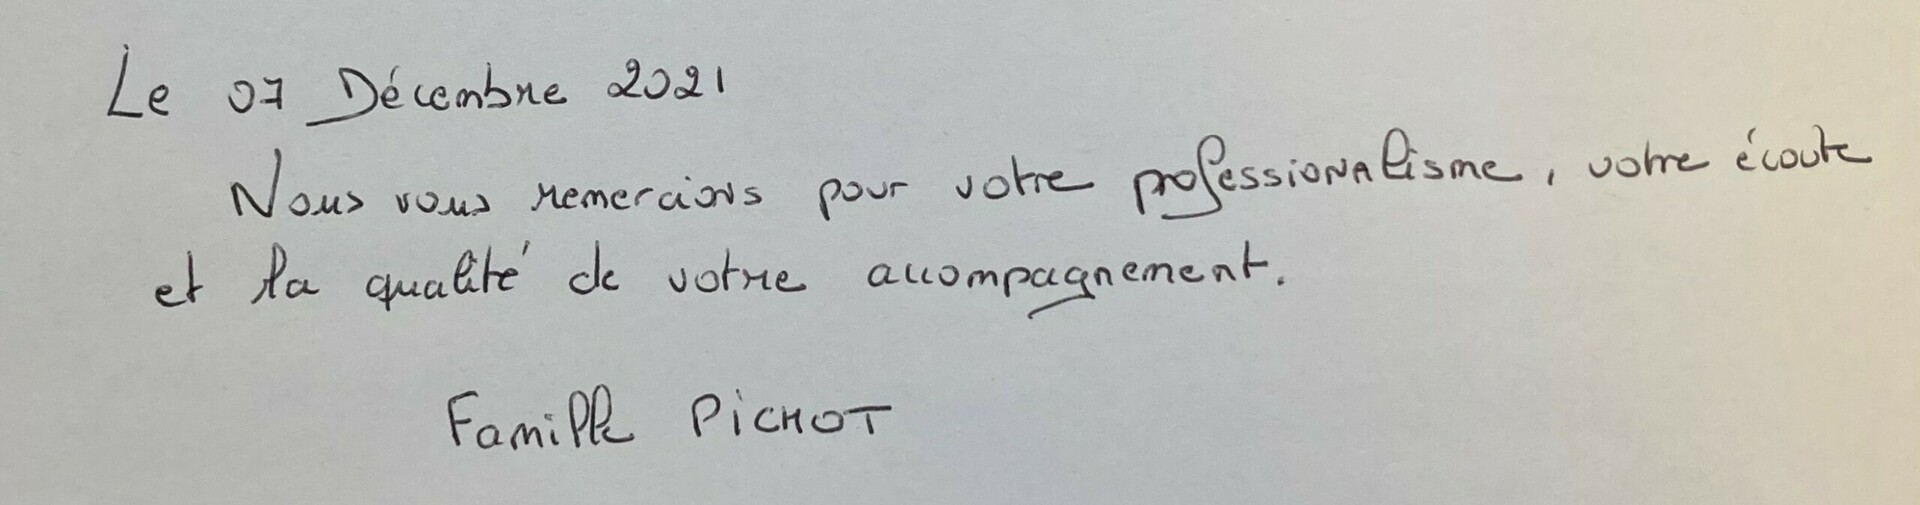 Le 07 Décembre 2021
Nous vous remercions pour votre professionalisme, votre écoute
et la qualité de votre accompagnement.
Famille PICHOT